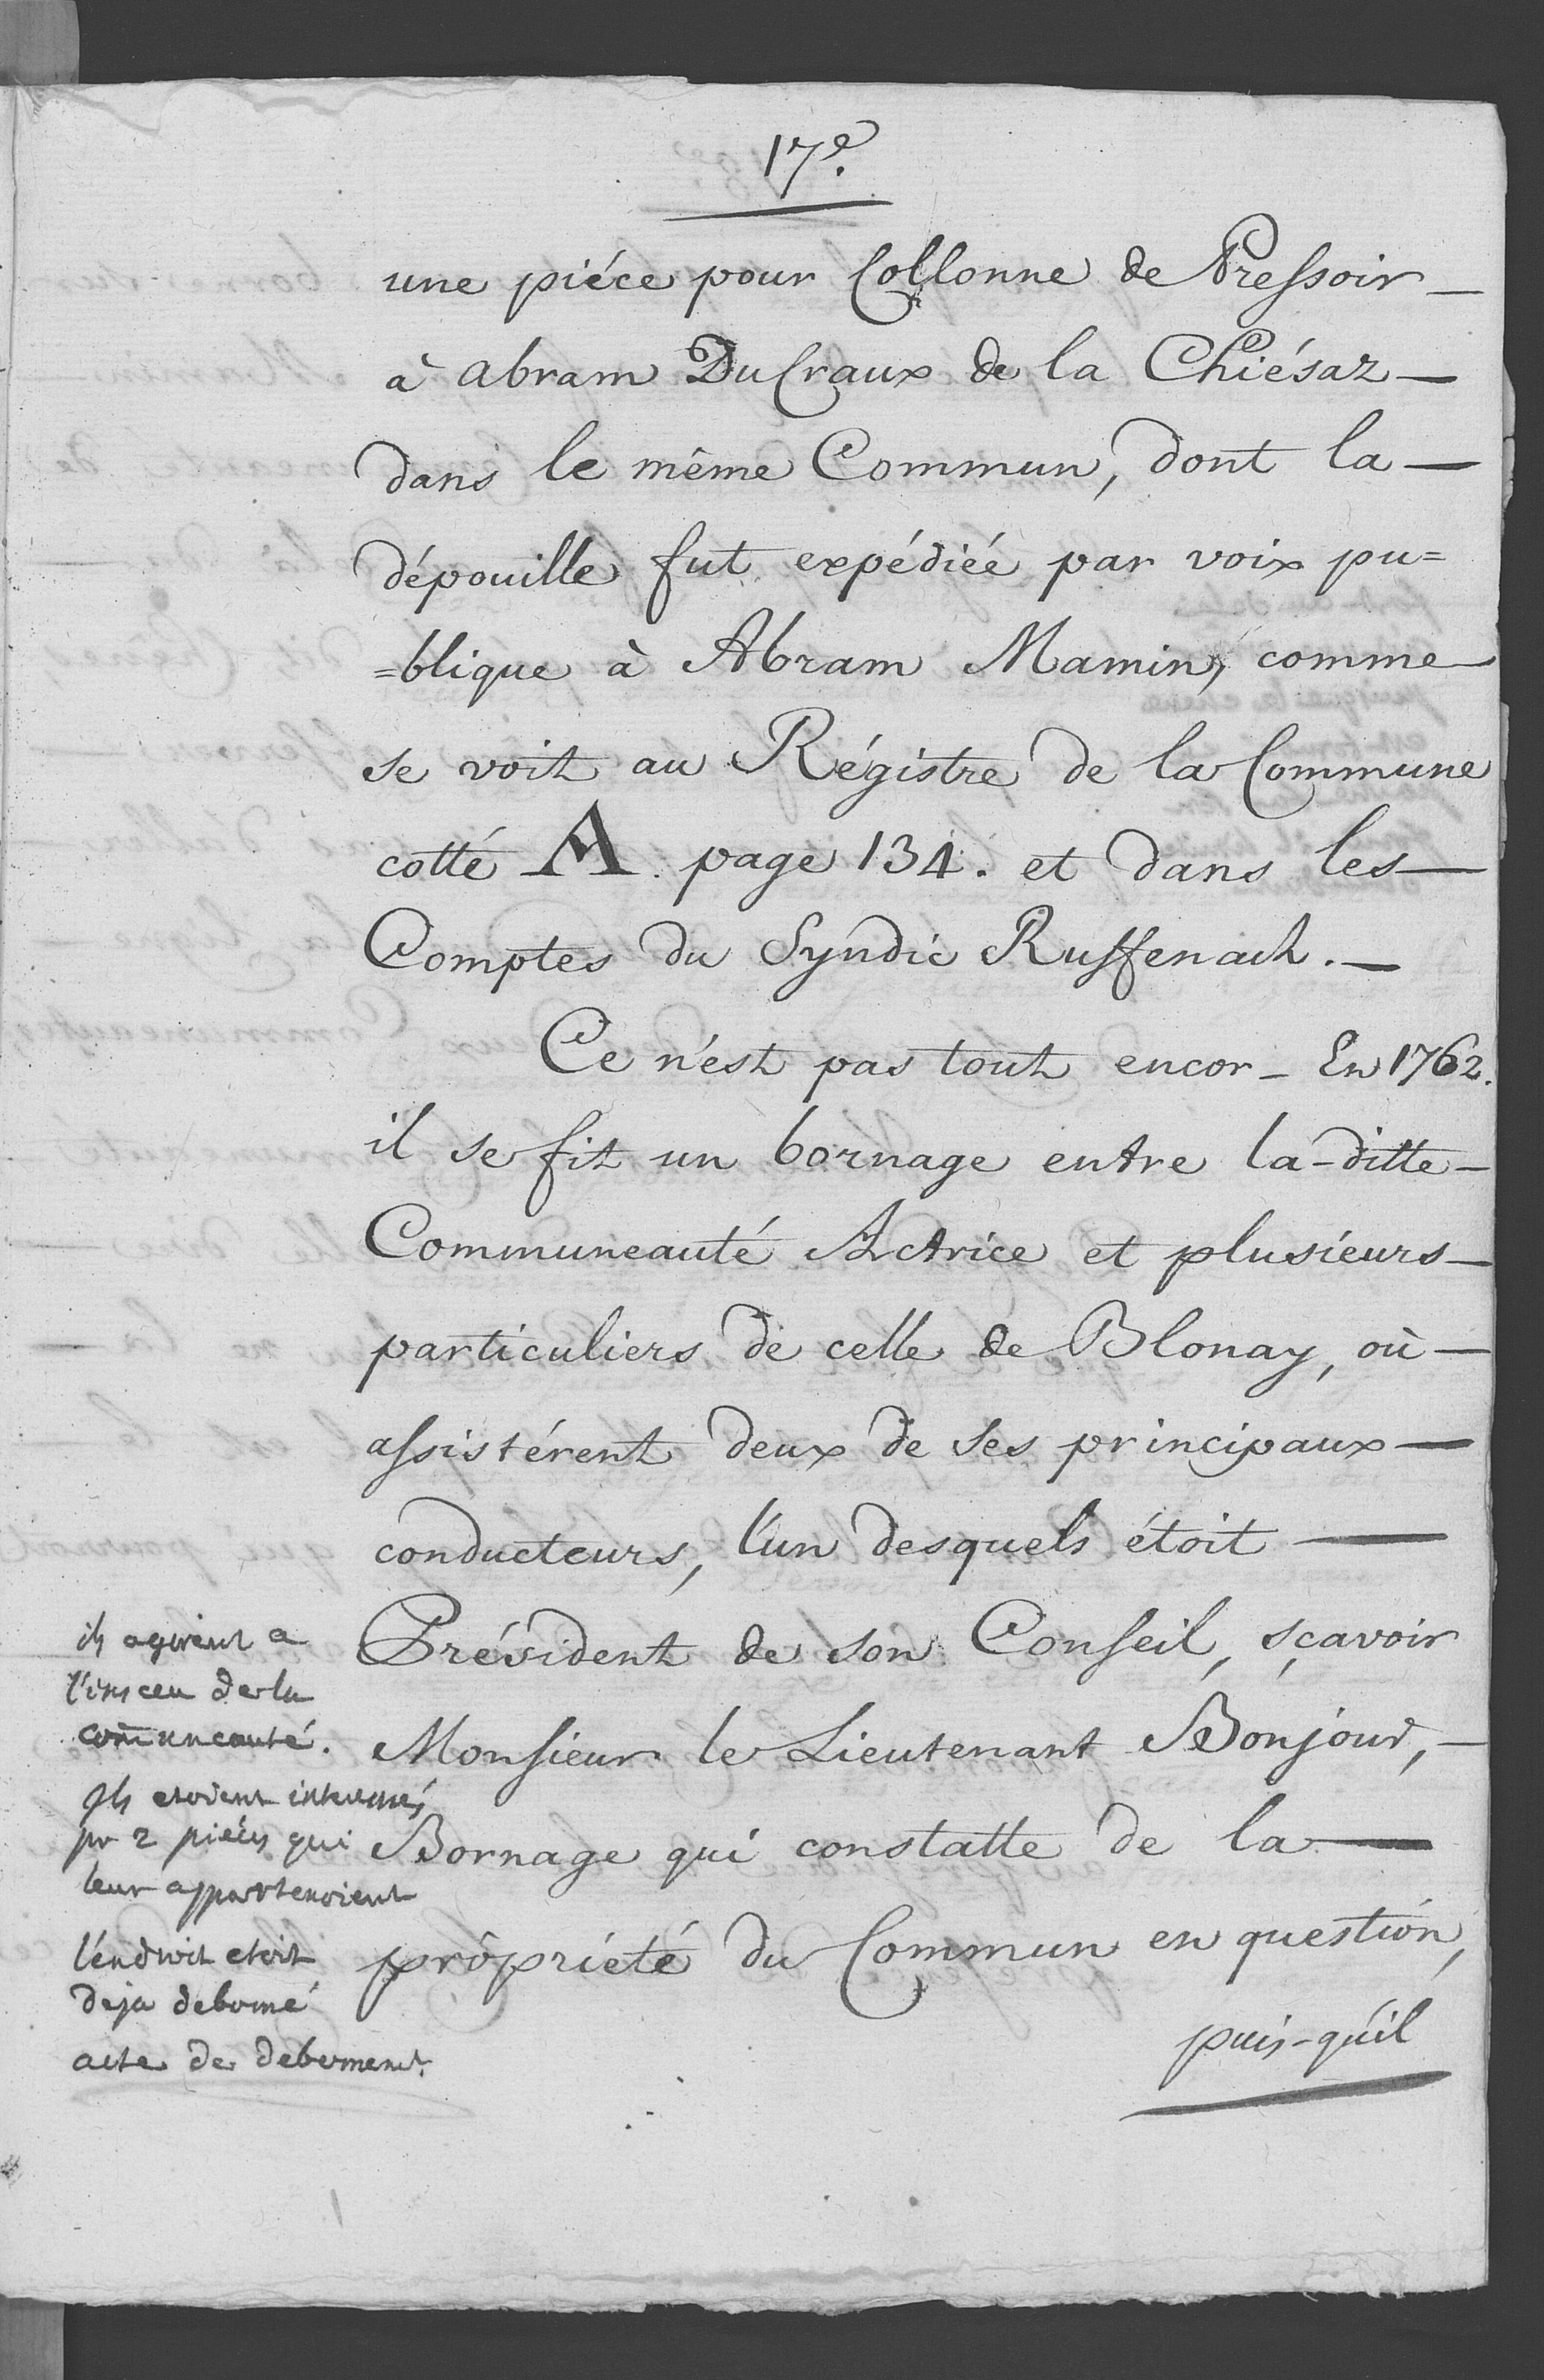 17e.
une piéce pour Collonne de Pressoir —
à abram DuCraux de la Chiésaz —
dans le même Commun, dont la —
dépouille fut expédiée par voix pu=
=blique à Abram Mamin, comme
se voit au Régistre de la Commune
cotté A. page 134. et dans les —
Comptes du Syndic Ruffenach. —
Ce n'est pas tout encor — En 1762.
il se fit un bornage entre la-ditte —
Communeauté Actrice et plusieurs —
particuliers de celle de Blonay, où —
assistérent deux de ses principaux —
conducteurs, l'un desquels étoit —
Président de son Conseil, sçavoir
Monsieur le Lieutenant Bonjour, —
Bornage qui constatte de la —
propriété du Commun en question,
puis-qu'il
ils agirent a
l'insceu de la
com̄uneauté.
Ils etoient interessés
pr 2 piéces qui
leur appartenoient
l'éndroit etoit
deja deborné
acte de debornement.